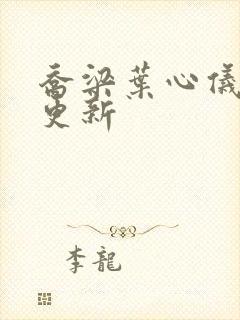 喬梁葉心儀
更新
李龍